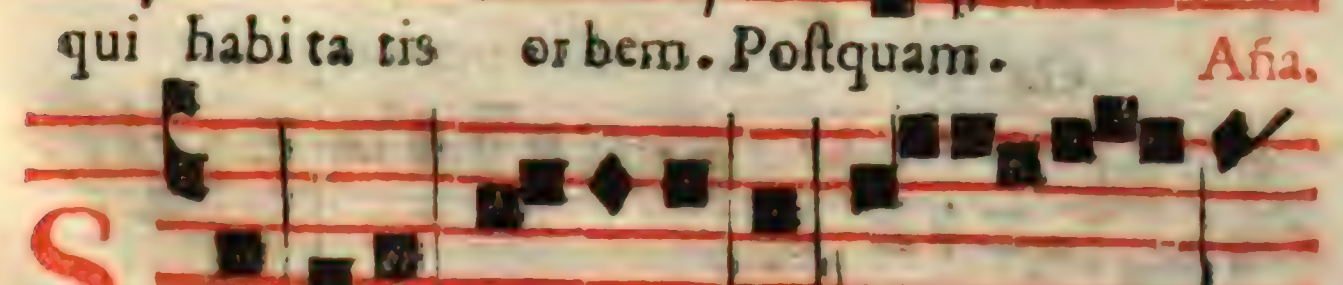 qui habi ta tis or bem. Poſtquam. Aña.
S